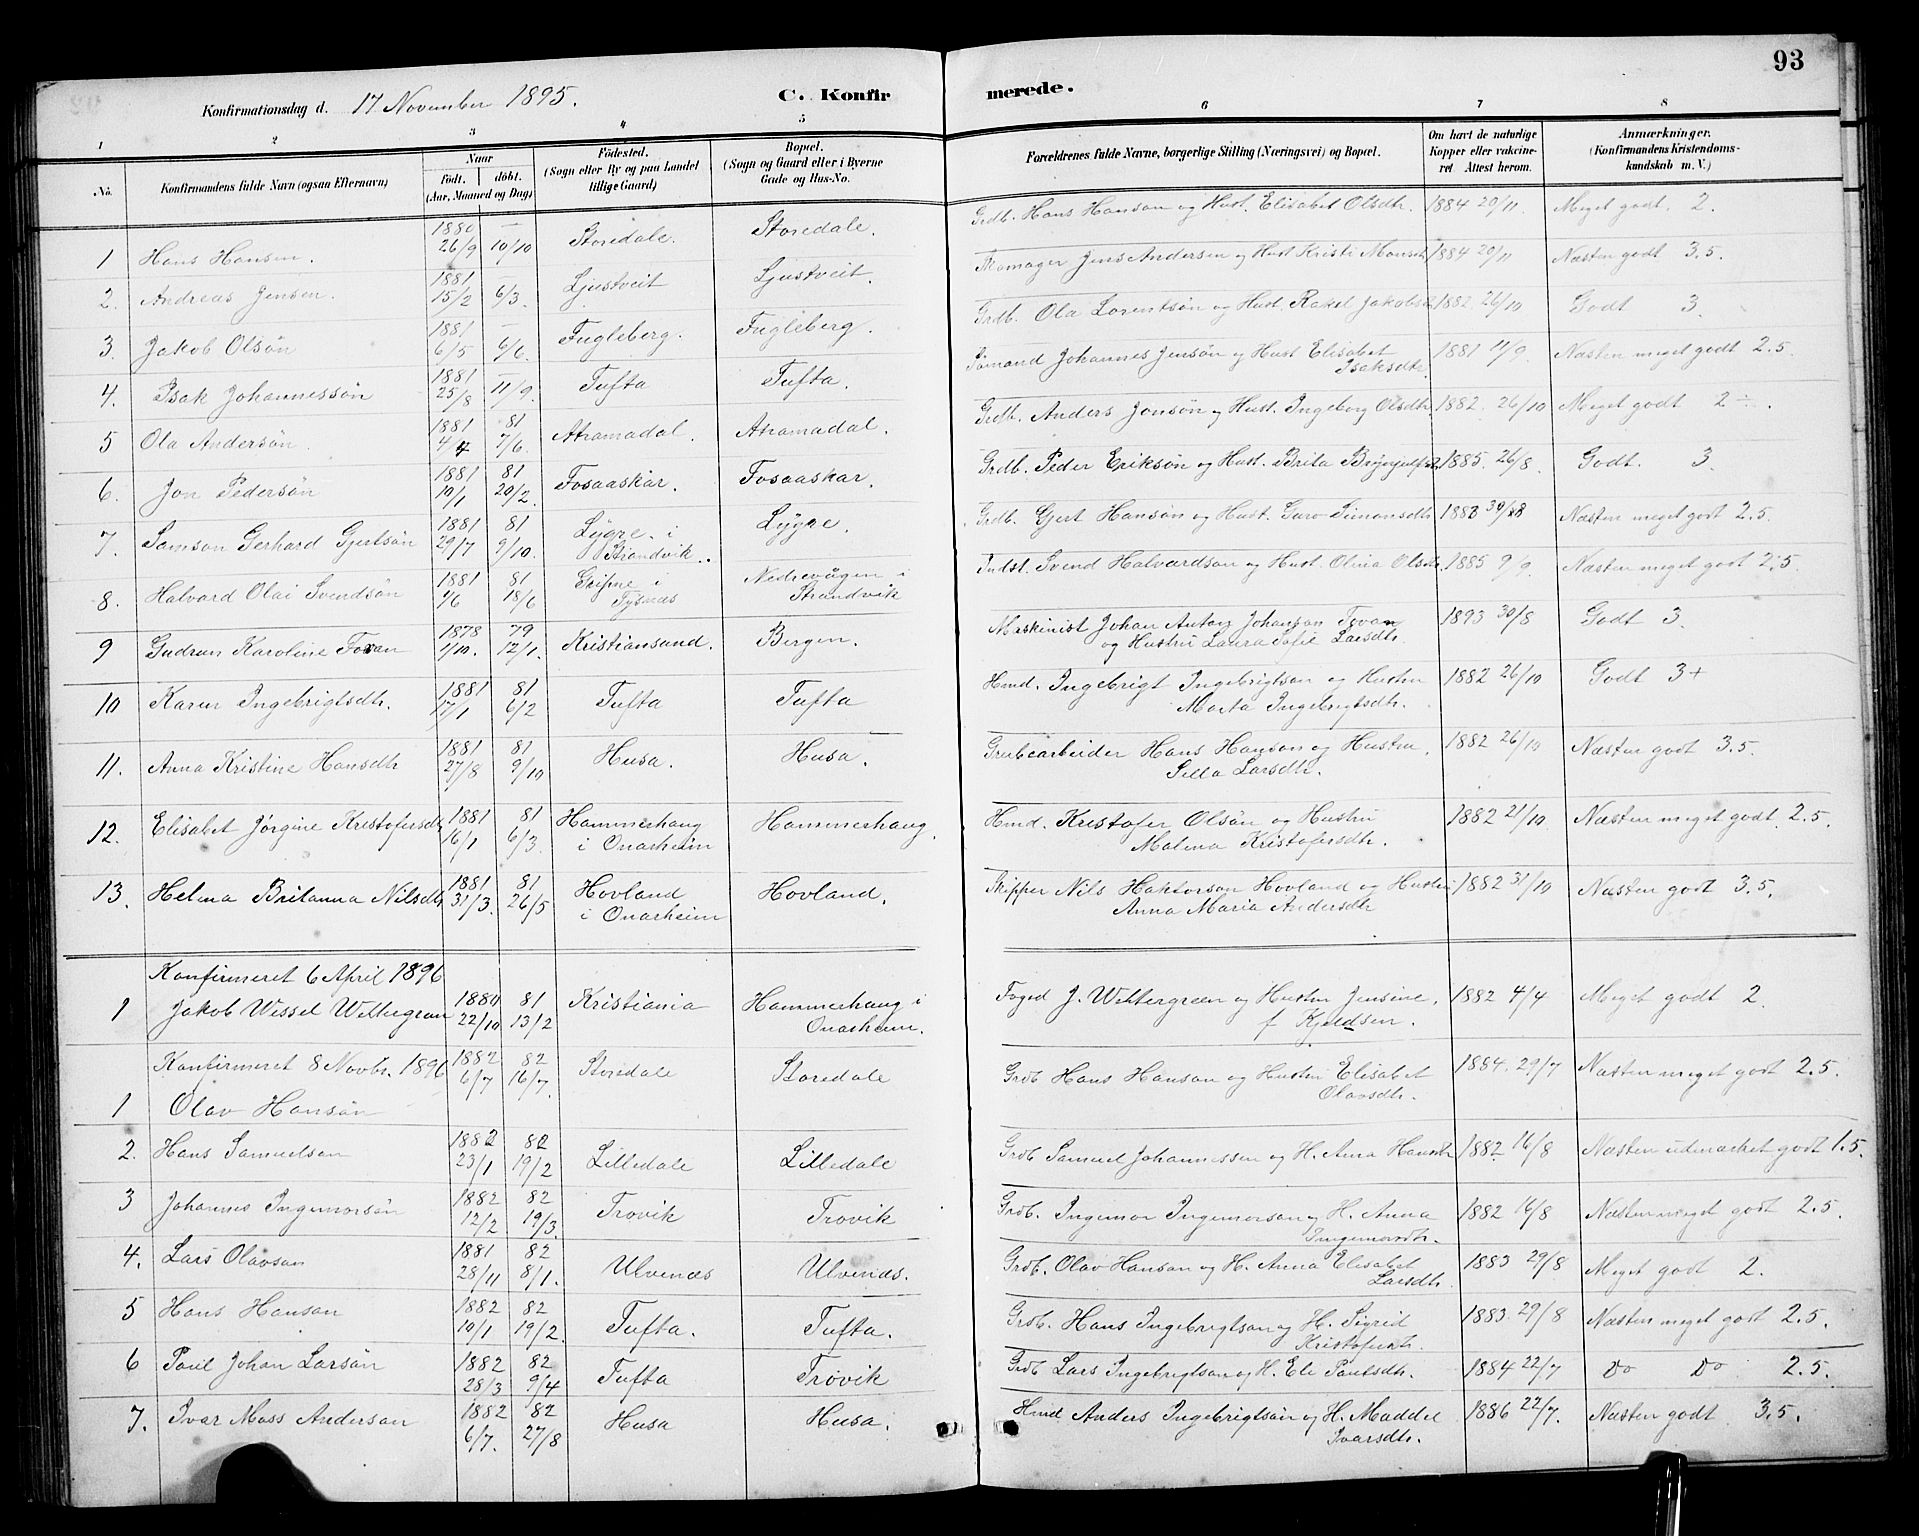 93
Konfirmationsdag d. 17 November 1895. C. Konfirmerede.
1 2 3 4 5 6 7 8
No. Konfirmandens fulde Navn (ogsaa Efternavn) Naar født. døbt. (Aar, Maaned og Dag) Fødested. (Sogn eller By og paa Landet tillige Gaard) Bopæl. (Sogn og Gaard eller i Byerne Gade og Hus-No. Forældrenes fulde Navne, borgerlige Stilling (Næringsvei) og Bopæl. Om havt de naturlige Kopper eller vakcineret Attest herom. Anmærkninger. (Konfirmandens Kristendomskundskab m. V.)
1 Hans Hansen. 1880 26/9 – 10/10 Storedale. Storedale. Grdb. Hans Hansøn og Hust. Elisabet Olsdtr. 1884 20/11. Meget godt. 2.
2. Andreas Jensen. 1881 15/2 – 6/3. Ljustveit Ljustveit Skomager Jens Andersen og Hust Kristi Monsdtr 1884 20/11 Næsten godt 3.5.
3. Jakob Olsøn 1881 6/5 – 6/6. Fugleberg. Fugleberg. Grdb. Ola Lorentsøn og Hust. Rakel Jakobsd. 1882 26/10 Godt 3.
4. Isak Johannessøn 1881 25/8 – 11/9. Tufta Tufta. Sømand Johannes Jensøn og Hust Elisabet Isaksdtr 1881 11/9. Næsten meget godt 2.5.
5 Ola Andersøn 1881 4/4 81 7/6. Aramadal. Aramadal. Grdb. Anders Jonsøn og Hust. Ingeborg Olsdtr. 1882. 26/10 Meget godt 2 ÷.
6. Jon Pedersøn 1881 10/1 81 20/2. Fosaaskar. Fosaaskar. Grdb. Peder Eriksøn og Hust. Brita Brynjulfsd. 1885. 26/8. Godt. 3.
7. Samson Gerhard Gjertsøn 1881 29/7 81 9/10. Lygre i Strandvik. Lygre. Grdb. Gjert Hansøn og Hust. Guro Simonsdtr 1883 Næsten meget godt 2.5.
8. Halvard Olai Svendsøn 1881 1/6 81 18/6 Gripne i Tysnes Nedrevågen i Strandvik Indst. Svend Halvardson og Hust. Olina Olsdtr. 1885 9/9. Næsten meget godt 2.5
9 Gudrun Karoline Tovan 1878 1/10. 79 12/1. Kristiansund. Bergen. Maskinist Johan Anton Johanson Tovan og Hustru Laura Sofie Larsdtr. 1893 30/8 Godt 3.
10 Karen Ingebrigtsdtr. 1881 17/1 81 6/2 Tufta Tufta Hmd. Ingebrigt Ingebrigtson og Hustru Marta Ingebrigtsdtr. 1882 26/10 Godt 3+
11. Anna Kristine Hansdtr 1881 27/8 81 9/10 Husa. Husa. Grubearbeider Hans Hanson og Hustru, Silla Larsdtr. 1882 26/10 Næsten godt 3.5.
12. Elisabet Jørgine Kristofersdtr 1881 16/1 81 6/3. Hammerhaug i Onarheim Hammerhaug. Hmd. Kristofer Olsøn og Hustru Malena Kristofersdtr. 1882 21/10 Næsten meget godt. 2.5.
13. Helena Britanna Nilsdtr 1881 31/3. 81 26/5 Hovland i Onarheim Hovland. Skipper Nils Haktorson Hovland og Hustru Anna Maria Andersdtr 1882 31/10 Næsten godt 3.5.
Konfirmeret 6 April 1896
1 Jakob Wessel Wettergren 1880 22/10 81 13/2 Kristiania Hammerhaug i Onarheim. Foged J. Wettergreen og Hustru Jensine, f Kjeldsen. 1882 4/4 Meget godt 2.
Konfirmeret 8 Novbr. 1896
1 Olav Hansøn 1882 6/7 82 16/7. Storedale Storedale Grdb Hans Hanson og Hustru Elisabet Olavsdtr. 1884. 29/7 Næsten meget godt 2.5.
2. Hans Samuelson 1882 23/1 82 19/2 Lilledale Lilledale Grdb Samuel Johannessen og H. Anna Hansdtr 1882 16/8 Næsten udmærket godt 1.5.
3 Johannes Ingemorsøn 1882 12/2 82 19/3. Trovik Trovik Grdb. Ingemor Ingemorson og H. Anna Ingemorsdtr. 1882 16/8 Næsten meget godt 2.5.
4. Lars Olavson 1881 28/11 82 8/1. Ulvenæs Ulvenæs. Grdb. Olav Hanson og H. Anna Elisabet Larsdtr. 1883 29/8 Meget godt 2.
5 Hans Hanson 1882 10/1 82 19/2. Tufta. Tufta. Grdb. Hans Ingebrigtson og H. Sigrid Kristofersdtr. 1883. 29/8 Næsten meget godt 2.5.
6 Poul Johan Larsøn 1882 28/3 82 9/4 Tufta Trovik Grdb Lars Ingebrigtson og H. Eli Poulsdtr. 1884 22/7 Do Do 2.5.
7. Ivar Moss Anderson 1882 6/7. 82 27/8 Husa Husa. Hmd Anders Ingebrigtsøn og H. Maddel Ivarsdtr. 1886 22/7. Næsten godt 3.5.